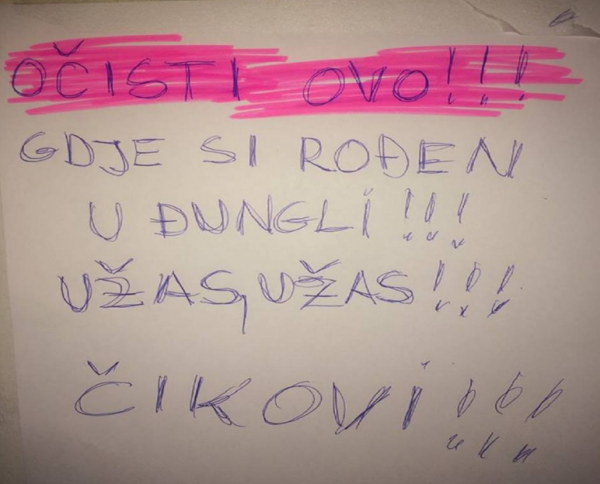 OČISTI OVO!!!
GDJE SI ROĐEN
U ĐUNGLI!!!
UŽAS, UŽAS!!!
ČIKOVI!!!